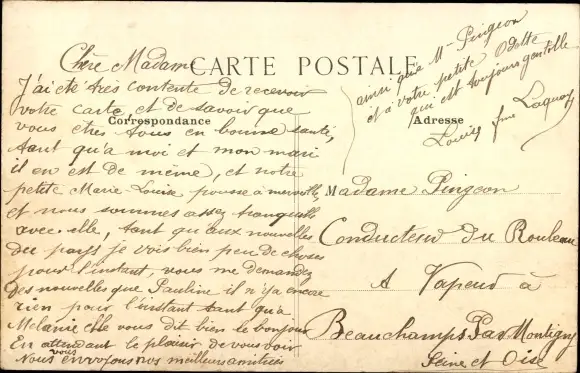 CARTE POSTALE
Correspondance
Adresse
Chère Madame
J'ai été très contente de recevoir
votre carte et de savoir que
vous etes tous en bonne santé,
tant qu'a moi et mon mari
il en est de même, et notre
petite Marie Louise pousse a merveille
et nous sommes assez tranquille
avec elle, tant qu'aux nouvelles
du pays je vois bien peu de choses
pour l'instant, vous me demandez
des nouvelles que Pauline il n'y a encore
rien pour l'instant tant qu'a
Melanie elle vous dit bien le bonjour
En attendant le plaisir de vous voir
Nous vous envoyons nos meilleurs amitiés
ainsi que Mr Pingeon
et a votre petite Odette
qui est toujours gentille
Louise fme
Madame Pingeon
Conducteur du Rouleau
A Vapeur à
Beauchamps Par Montigny
Seine et Oise